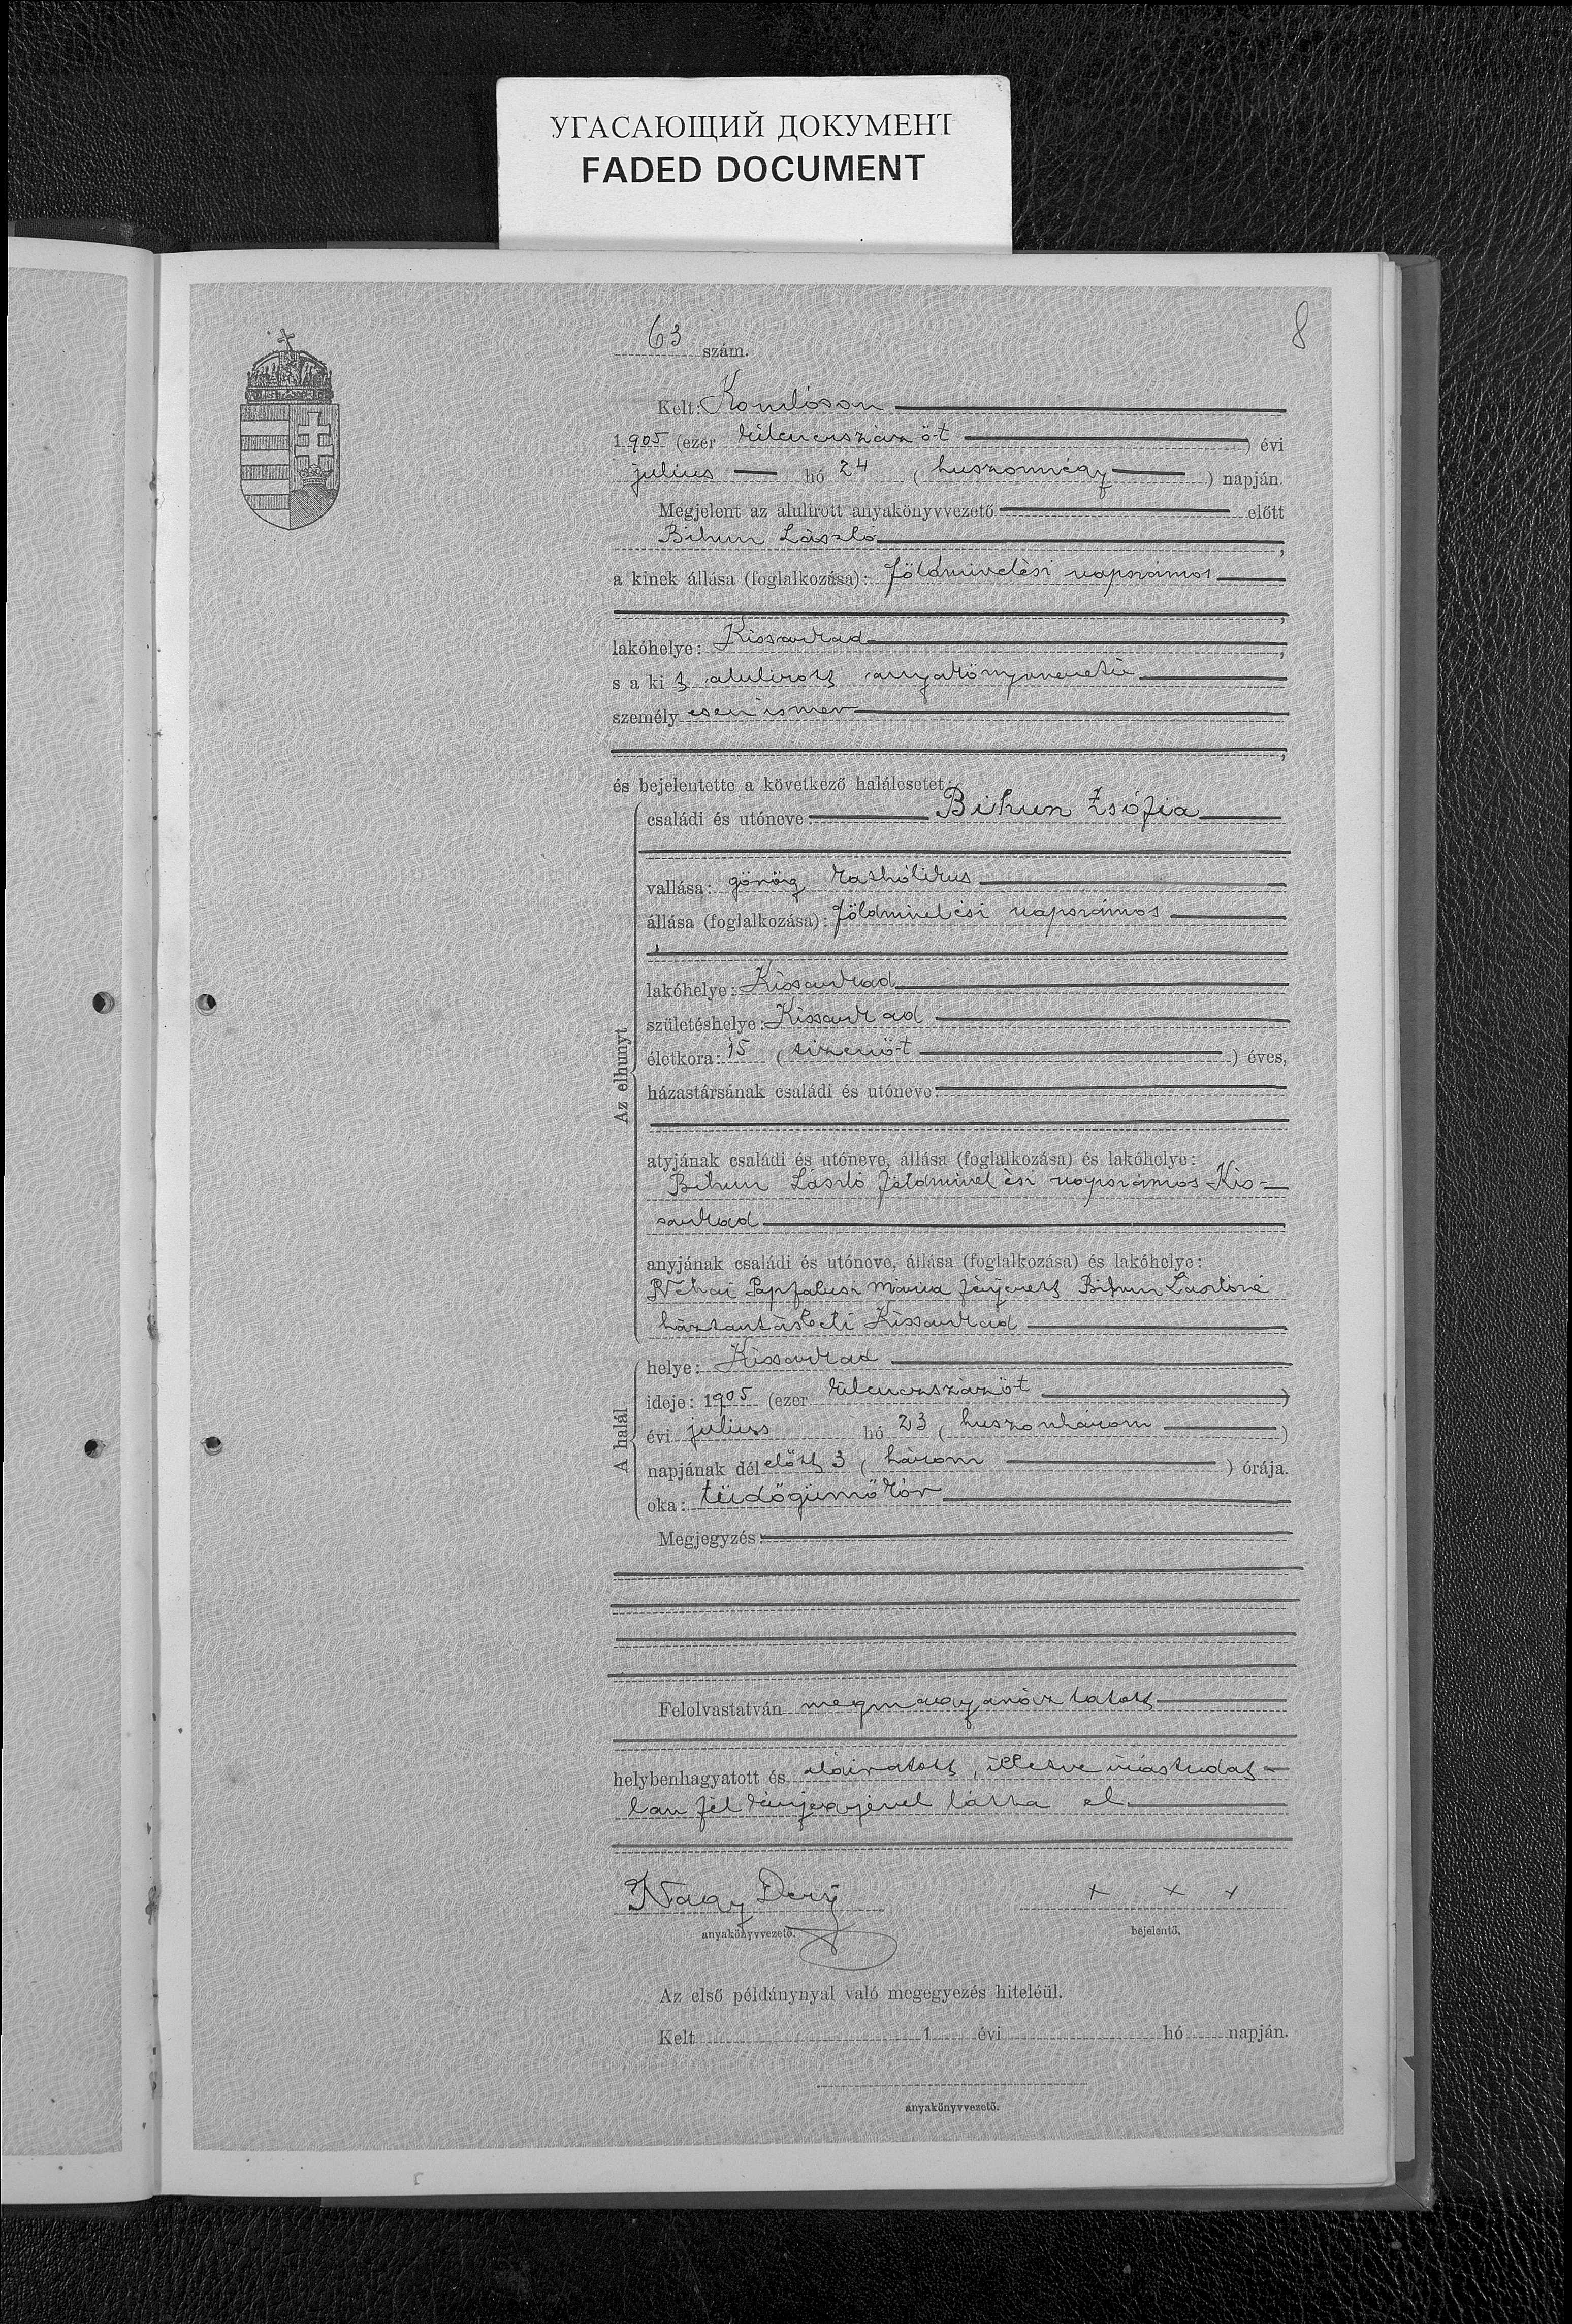 УГАСАЮЩИЙ ДОКУМЕНТ
FADED DOCUMENT
8
63 szám.
Kelt: Komlóson
1905 (ezer kilencszáz öt) évi
julius hó 24 (huszonnégy) napján.
Megjelent az alulirott anyakönyvvezető előtt
Bihun László,
a kinek állása (foglalkozása): földmivelési napszámos
,
lakóhelye: Kissarkad,
s a kit alulirott anyakönyvvezető
személyesen ismer
,
és bejelentette a következő halálesetet:
Az elhunyt
családi és utóneve: Bihun Zsófia
vallása: görög katholikus
állása (foglalkozása): földmivelési napszámos
,
lakóhelye: Kissarkad
születéshelye: Kissarkad
életkora: 15 (tizenöt) éves,
házastársának családi és utóneve:
atyjának családi és utóneve, állása (foglalkozása) és lakóhelye:
Bihun László földmivelési napszámos Kis-
sarkad
anyjának családi és utóneve, állása (foglalkozása) és lakóhelye:
Néhai Papfalusi Mária férjezett Bihun Lászlóné
háztartásbeli Kissarkad
A halál
helye: Kissarkad
ideje: 1905 (ezer kilencszázöt)
évi julius hó 23 (huszonhárom)
napjának délelőtt 3 (három) órája.
oka: tüdőgümőkór
Megjegyzés:
Felolvastatván megmagyaráztatott
helybenhagyatott és aláiratott, illetve irástudat-
lan fél kézjegyével látta el.
Nagy
anyakönyvvezető.
+ + +
bejelentő.
Az első példánynyal való megegyezés hiteléül.
Kelt 1 évi hó napján.
anyakönyvvezető.